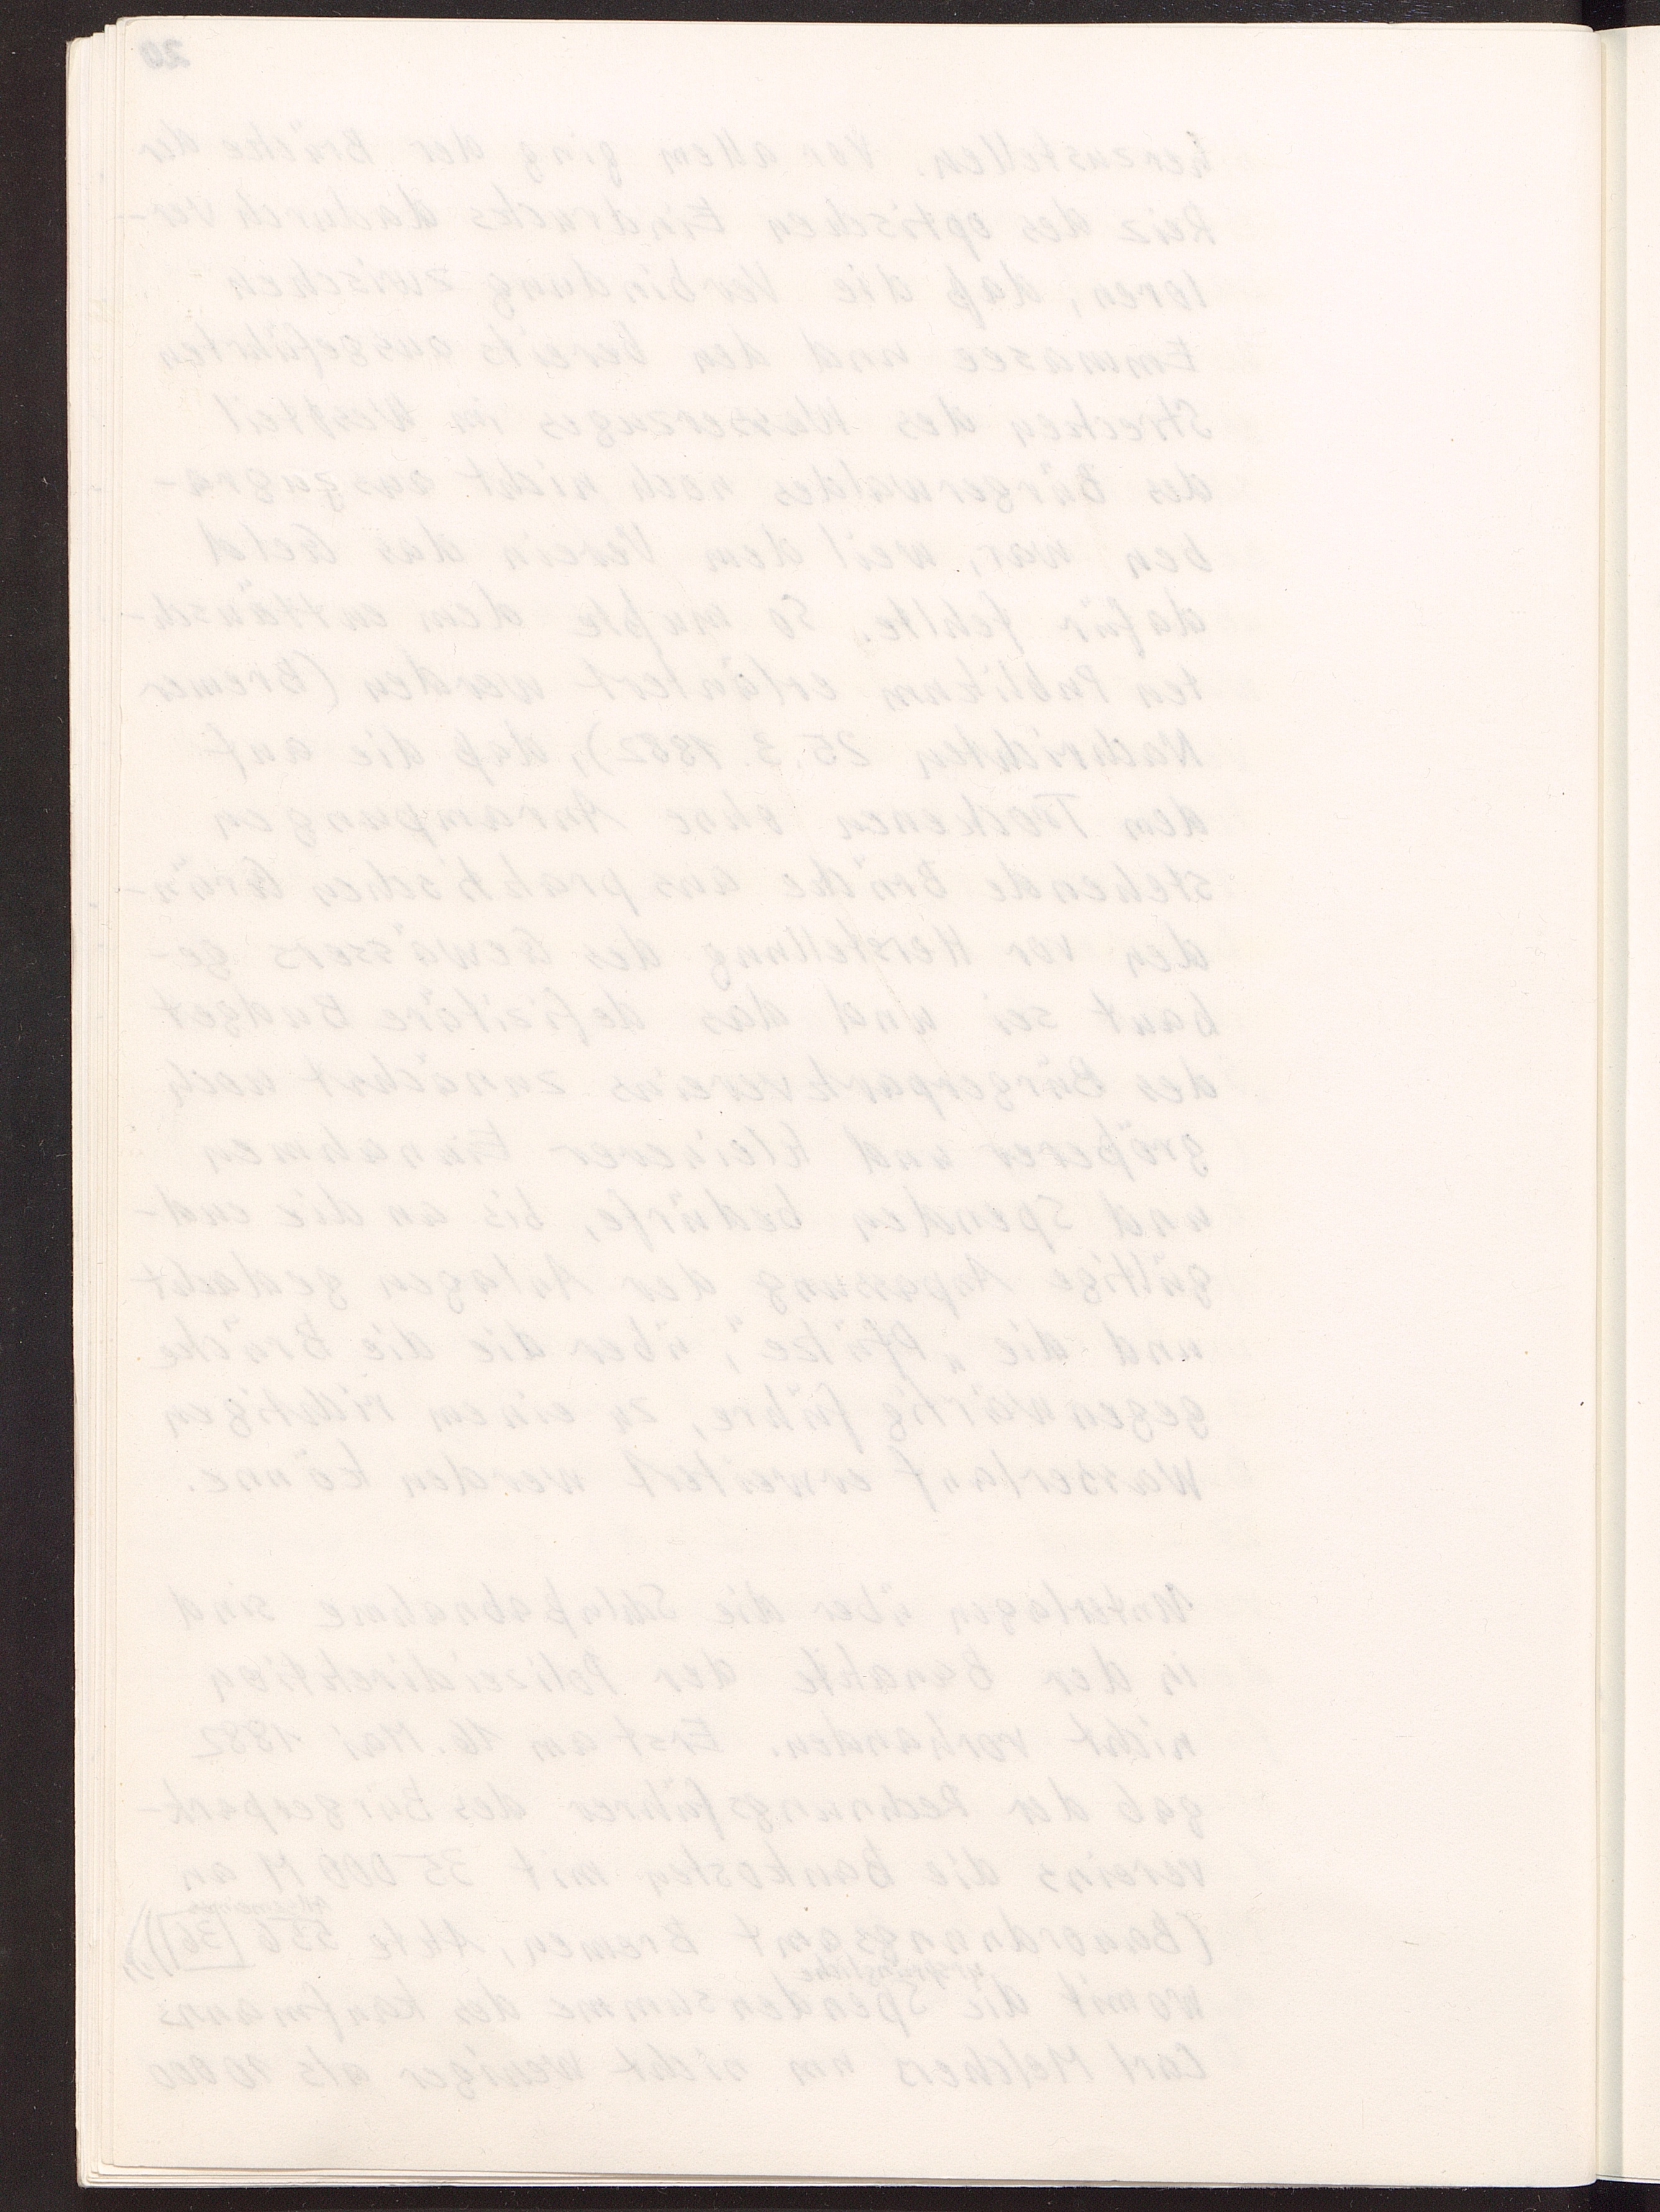 20
herzustellen. Vor allem ging der Brücke der
Reiz des optischen Eindruckes dadurch ver-
loren, daß die Verbindung zwischen
Emmasee und den bereits ausgeführten
Strecken des Wasserzuges im Westteil
des Bürgerwaldes noch nicht auszugra-
ben war, weil dem Verein das Geld
dafür fehlte. So mußte dem enttäusch-
ten Publikum erläutert werden (Bremer
Nachrichten 25.3.1882), daß die auf
dem Trockenen ohne Anrampungen
stehende Brücke aus praktischen Grün-
den vor Herstellung des Gewässers ge-
baut sei und das defizitäre Budget
des Bürgerparkvereins zunächst noch
größerer und kleinerer Einnahmen
und Spenden bedürfe, bis an die end-
gültige Anpassung der Anlagen gedacht
und die „Pfütze", über die die Brücke
gegenwärtig führe, zu einem richtigen
Wasserlauf erweitert werden könne.
Unterlagen über die Schlußabnahme sind
in der Bauakte der Polizeidirektion
nicht vorhanden. Erst am 16. Mai 1882
gab der Rechnungsführer des Bürgerpark-
vereins die Baukosten mit 35 000 M an
(Bauordnungsamt Bremen, Akte 536 [36]),
womit die ursprüngliche Spendensumme des Kaufmanns
Carl Melchers um nicht weniger als 10 000